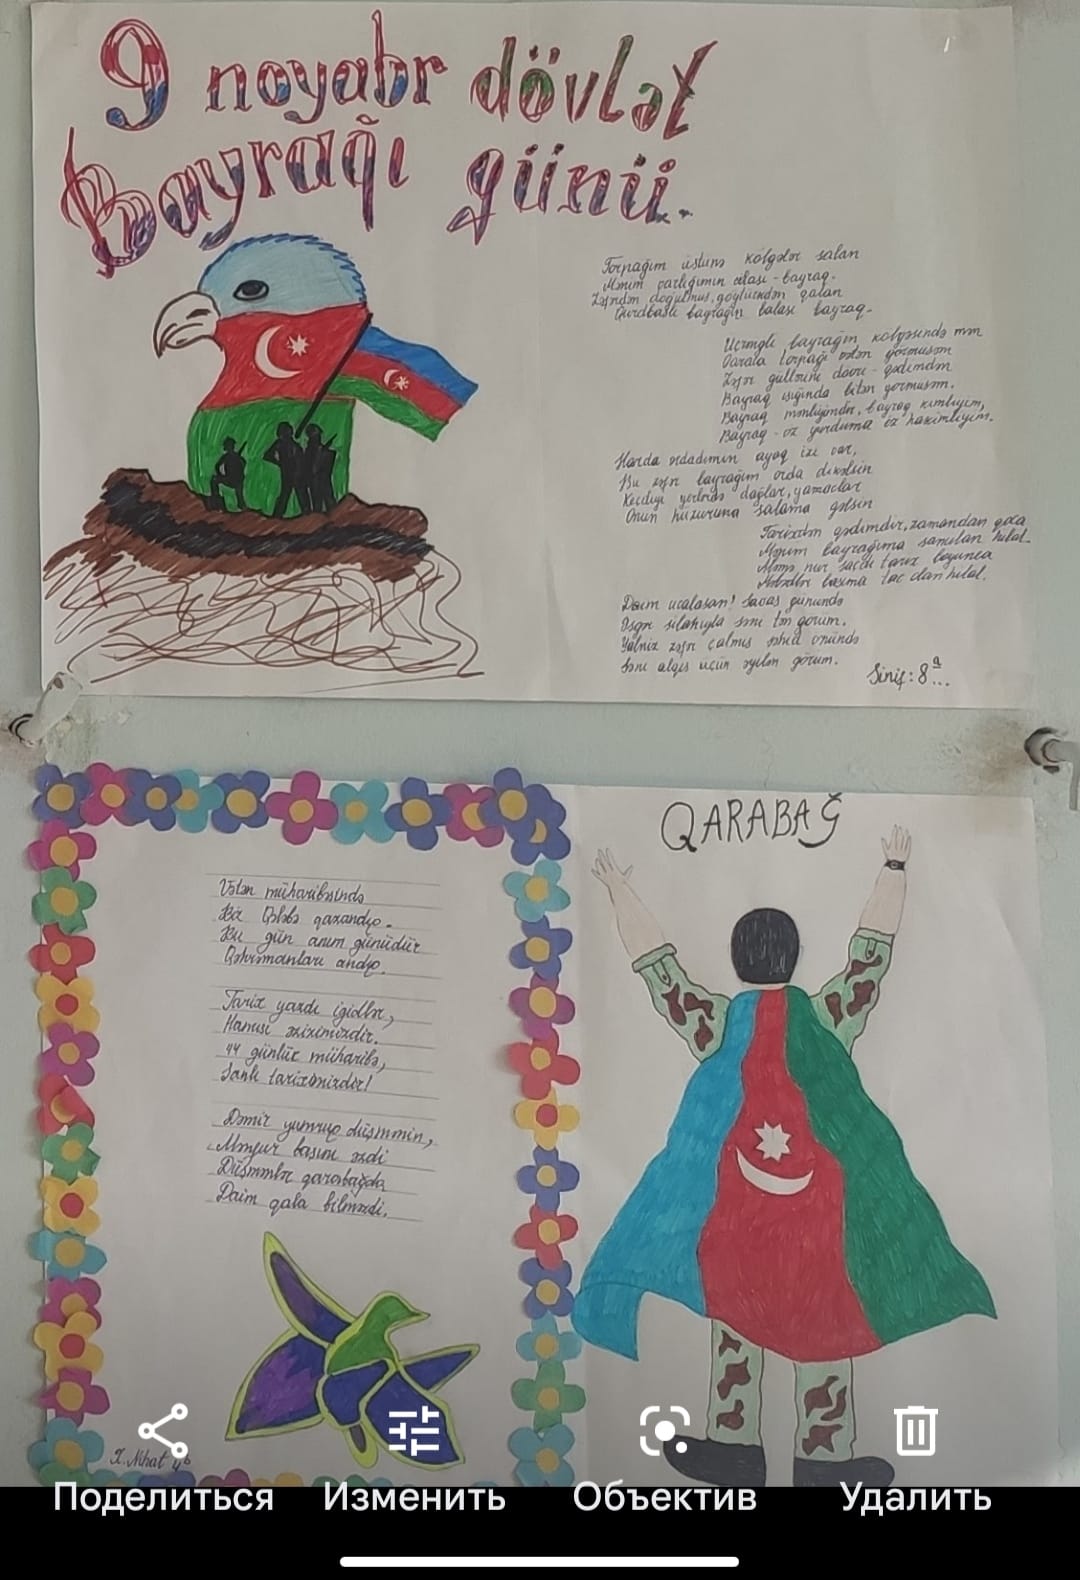 9 noyabr dövlət
Bayrağı günü.
Torpağım üstünə kölgələr salan
Mənim varlığımın balası - bayraq.
Zəfərdən doğulmuş, göytürkdən qalan
Qurdbaşlı bayrağın balası bayraq.
Üçrəngli bayrağın kölgəsində mən
Qarala torpağı vətən görmüşəm
Zəfər güllərini dövrü-qədimdən
Bayraq işığında bitən görmüşəm.
Bayraq mənliyimdir, bayraq kimliyim,
Bayraq - öz yurduma öz hakimliyim.
Harda əcdadımın ayaq izi var,
Bu zəfər bayrağım orda dikəlsin
Keçdiyi yerlərdə dağlar, yamaclar
Onun hüzuruna salama gəlsin
Tarixdən qədimdir, zamandan qoca
Mənim bayrağıma sancılan hilal.
Mənə nur saçdı tarix boyunca
başıma tac olan hilal.
Daim ucalasan! Savaş günündə
Əsgər silahıyla səni tən görüm.
Yalnız zəfər çalmış şəhid önündə
Səni alqış üçün əyilən görüm.
Sinif: 8ᵃ...
QARABAĞ
Vətən müharibəsində
Biz Qələbə qazandıq.
Bu gün anım günüdür
Qəhrəmanları andıq.
Tarix yazdı igidlər,
Hamısı əzizimizdir.
44 günlük müharibə,
Şanlı tariximizdir!
Dəmir yumruq düşmənin,
Mənfur başını əzdi
Düşmənlər qarabağda
Daim qala bilməzdi.
X. Nihat 4ᵇ
Поделиться
Изменить
Объектив
Удалить